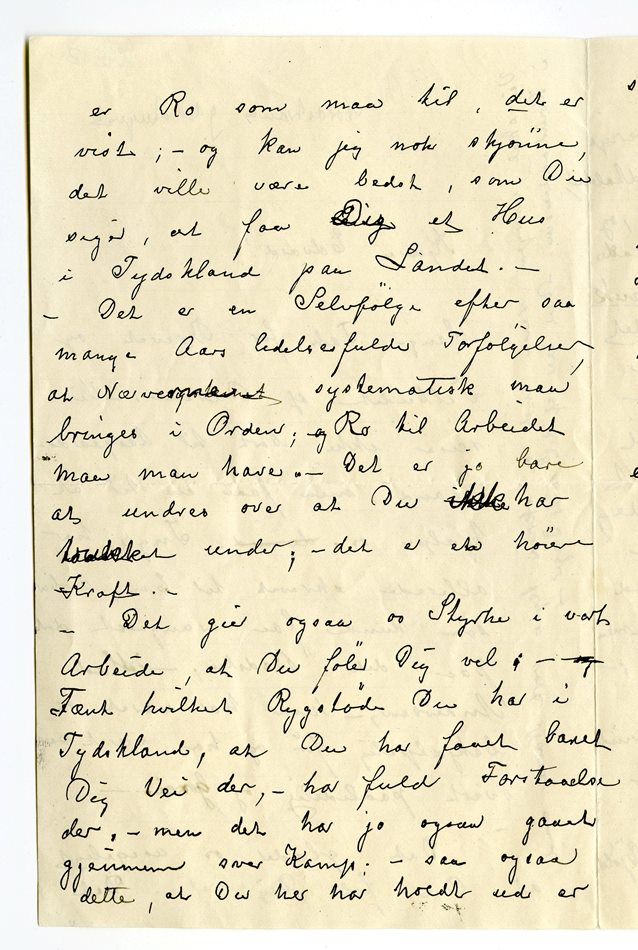 er Ro som maa til, det er
vist; – og kan jeg nok skjönne,
det ville være bedst, som Du
siger, at faa Dig et Hus
i Tydskland paa Landet. –
– Det er en Selvfölge efter saa
mange Aars lidelsesfulde Forfölgelser,
at Nerve systematisk maa
bringes i Orden; og Ro til Arbeidet
maa man have. – Det er jo bare
at undres over at Du ikke har
under; – det er en höiere
Kraft. –
– Det gir ogsaa os Styrke i vort
Arbeide, at Du föler Dig vel; –
Tænk hvilket Rygstöd Du har i
Tydskland, at Du har faaet banet
Dig Vei der, – har fuld Forstaaelse
der. – men det har jo ogsaa gaaet
gjennem svær Kamp; – saa ogsaa
dette, at Du her har holdt ud er